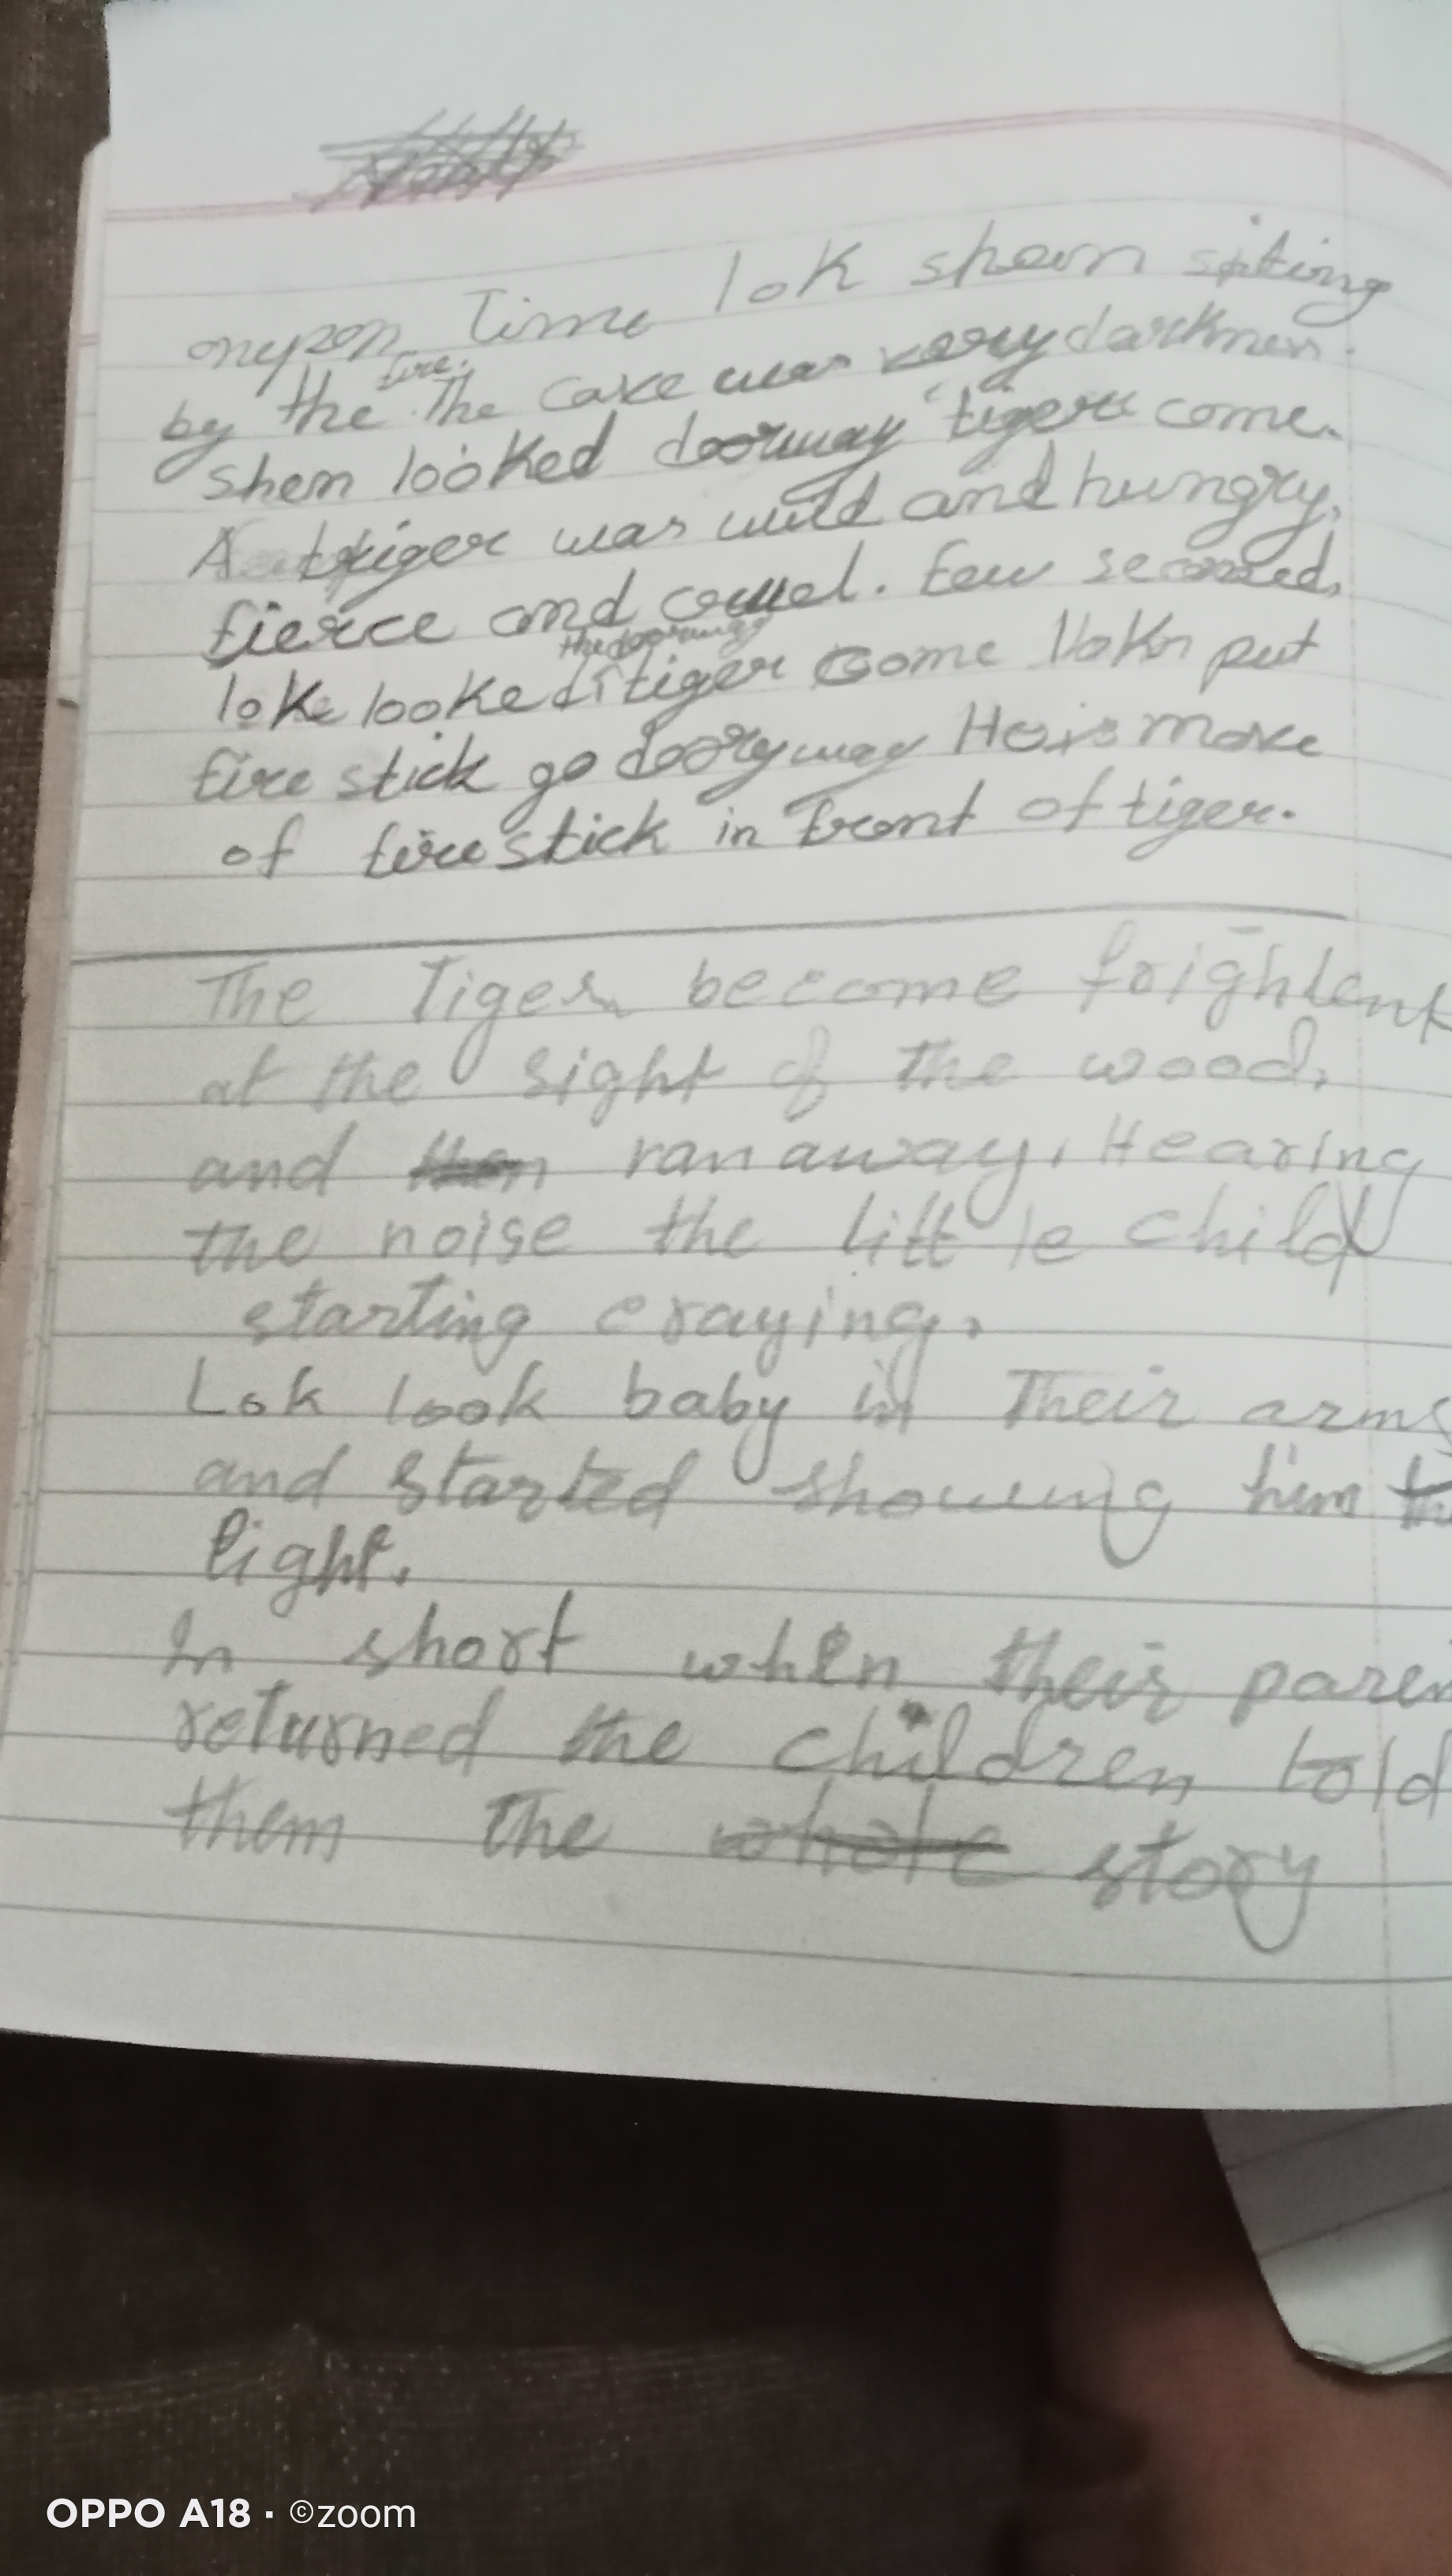 onypon Time lok shem siting
by the fire. The cave was very darkness.
Shem looked doorway tiger come.
A tiger was wild and hungry,
fierce and cruel. Few second,
loke looked the doorway tiger come lok put
fire stick go doorway He is move
of fire stick in front of tiger.
The Tiger become frightent
at the sight of the wood,
and ran away. Hearing
the noise the little child
starting craying,
Lok look baby in Their arms
and started showing him the
light.
In short when their paren
returned the children told
them The whole story
OPPO A18 · ©zoom